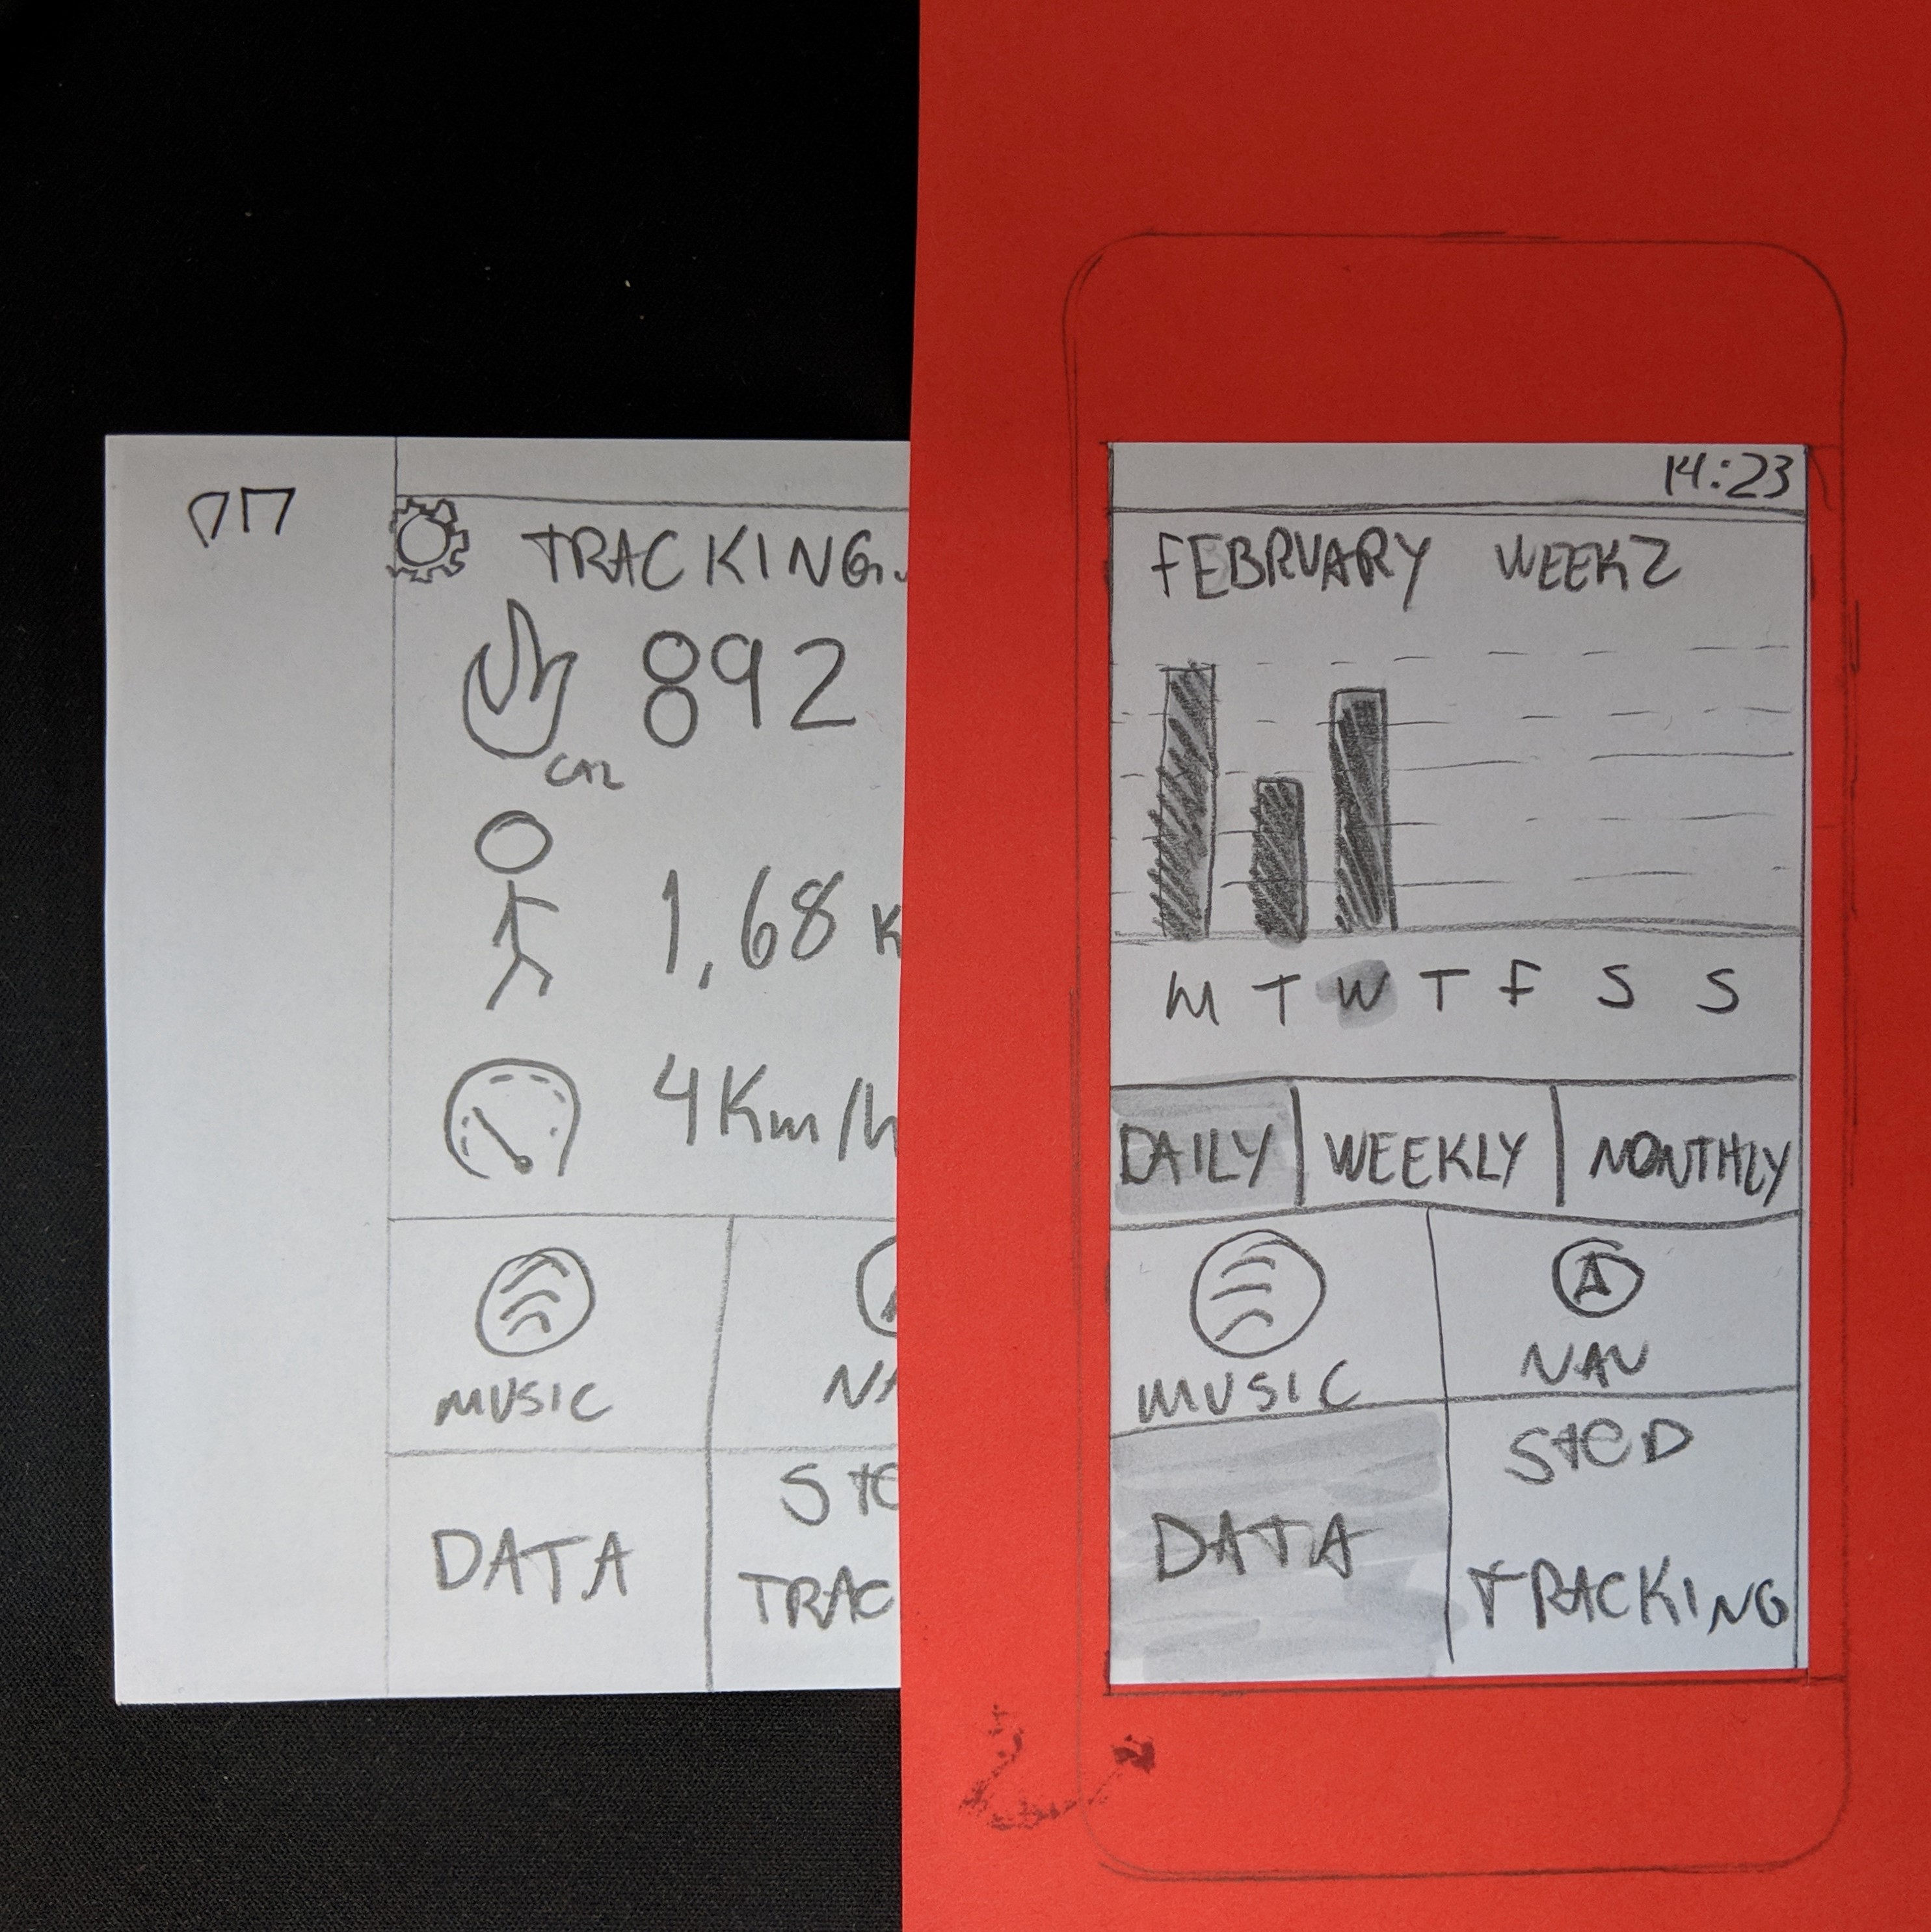 TRACKING.
892
CAL
1,68 K
4Km/h
MUSIC
NA
DATA
STE
TRAC
14:23
FEBRUARY WEEK2
M T W T F S S
DAILY WEEKLY MONTHLY
MUSIC
A
NAV
DATA
STED
TRACKING